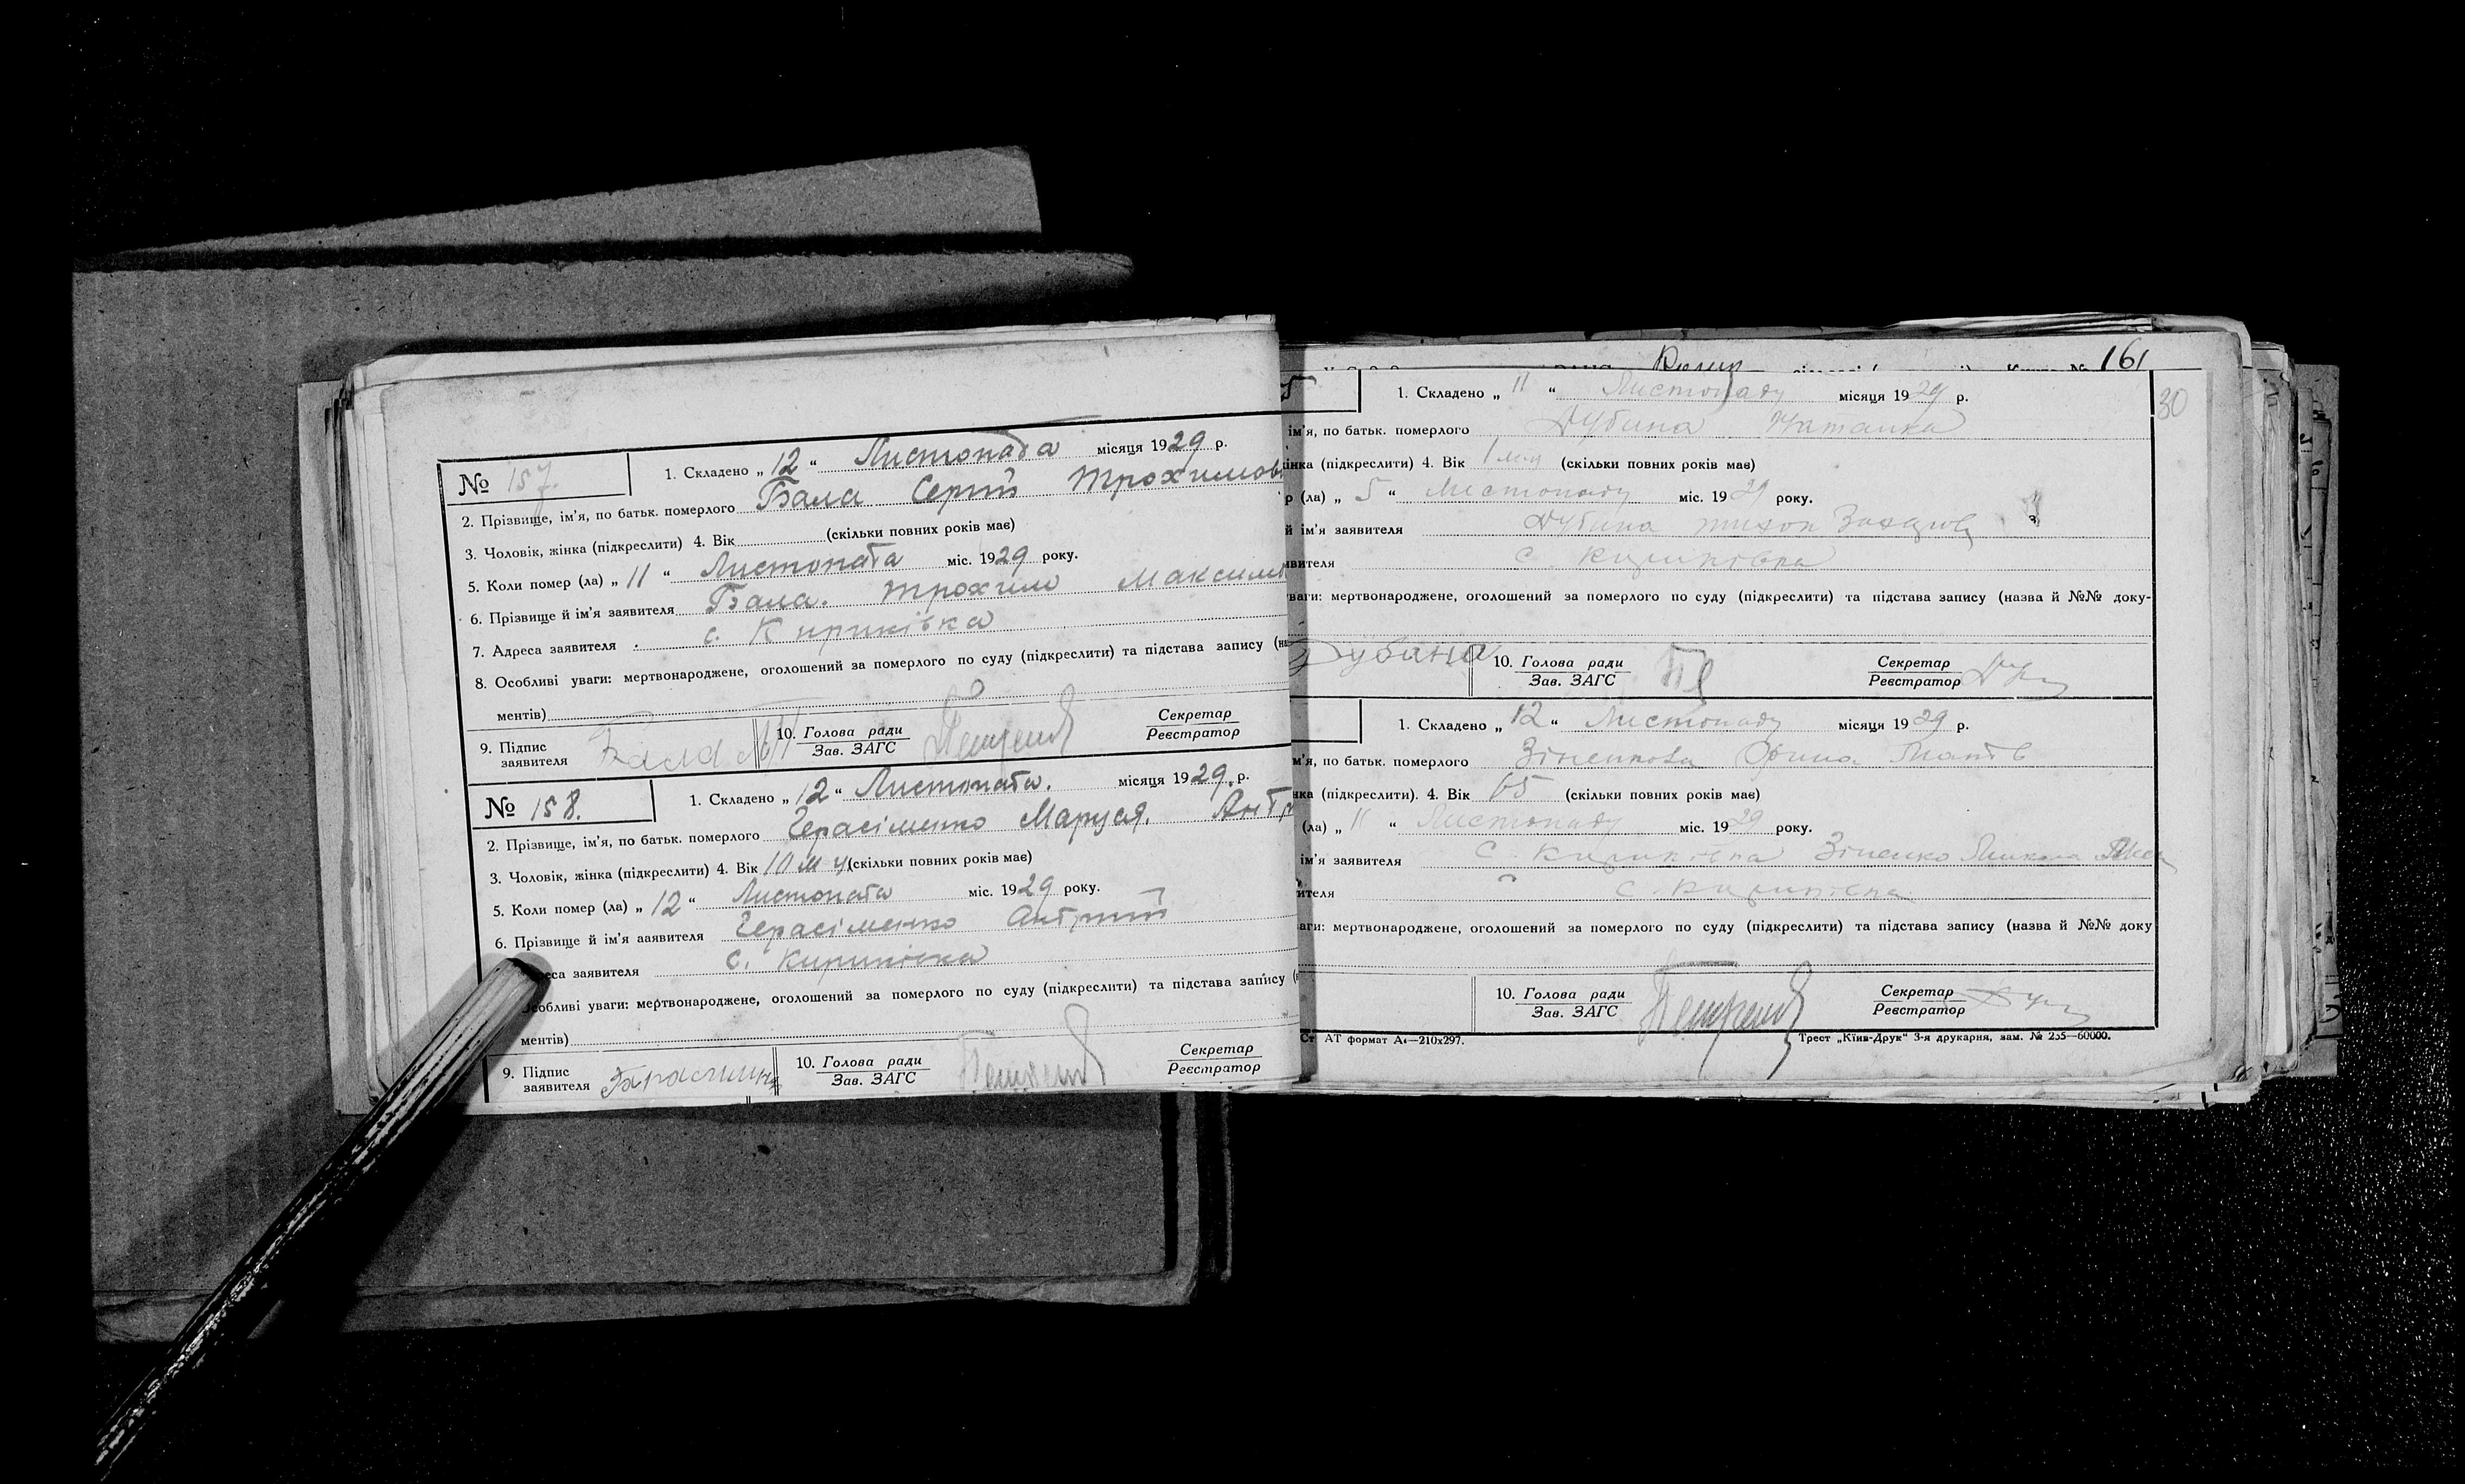 № 157.
1. Складено „ 12 “ Листопада місяця 1929 р.
2. Прізвище, ім'я, по батьк. померлого Бала Сергій Трохимов
3. Чоловік, жінка (підкреслити) 4. Вік (скільки повних років має)
5. Коли помер (ла) „ 11 “ Листопата міс. 1929 року.
6. Прізвище й ім'я заявителя Бала. Трохим Максим
7. Адреса заявителя с. Кириківка
8. Особливі уваги: мертвонароджене, оголошений за померлого по суду (підкреслити) та підстава запису
ментів)
9. Підпис заявителя Бала
10. Голова ради
Зав. ЗАГС
Секретар
Реєстратор
№ 158.
1. Складено „ 12 “ Листопата. місяця 1929 р.
2. Прізвище, ім'я, по батьк. померлого Герасіменко Маруся.
3. Чоловік, жінка (підкреслити) 4. Вік 10 м-ц (скільки повних років має)
5. Коли помер (ла) „ 12 “ Листопата міс. 1929 року.
6. Прізвище й ім'я заявителя Герасіменко
еса заявителя с. Кириківка
собливі уваги: мертвонароджене, оголошений за померлого по суду (підкреслити) та підстава запису
ментів)
9. Підпис заявителя
10. Голова ради
Зав. ЗАГС
Секретар
Реєстратор
161
30
5
1. Складено „ 11 “ Листопаду місяця 1929 р.
ім'я, по батьк. померлого Дубина Наталка
інка (підкреслити) 4. Вік 1 (скільки повних років має)
р (ла) „ 5 “ Листопаду міс. 1929 року.
й ім'я заявителя Дубина Тихон
явителя с. Кириківка
ваги: мертвонароджене, оголошений за померлого по суду (підкреслити) та підстава запису (назва й №№ доку-
Дубина
10. Голова ради
Зав. ЗАГС
Секретар
Реєстратор
1. Складено „ 12 “ Листопаду місяця 1929 р.
м'я, по батьк. померлого Зіненкова Орина
нка (підкреслити). 4. Вік 65 (скільки повних років має)
(ла) „ 11 “ Листопаду міс. 1929 року.
ім'я заявителя с. Кириківка Зіненко
ителя с. Кириківка
аги: мертвонароджене, оголошений за померлого по суду (підкреслити) та підстава запису (назва й №№ доку
10. Голова ради
Зав. ЗАГС
Секретар
Реєстратор
Ст АТ формат А4—210х297.
Трест „Київ-Друк“ 3-я друкарня, зам. № 235—60000.